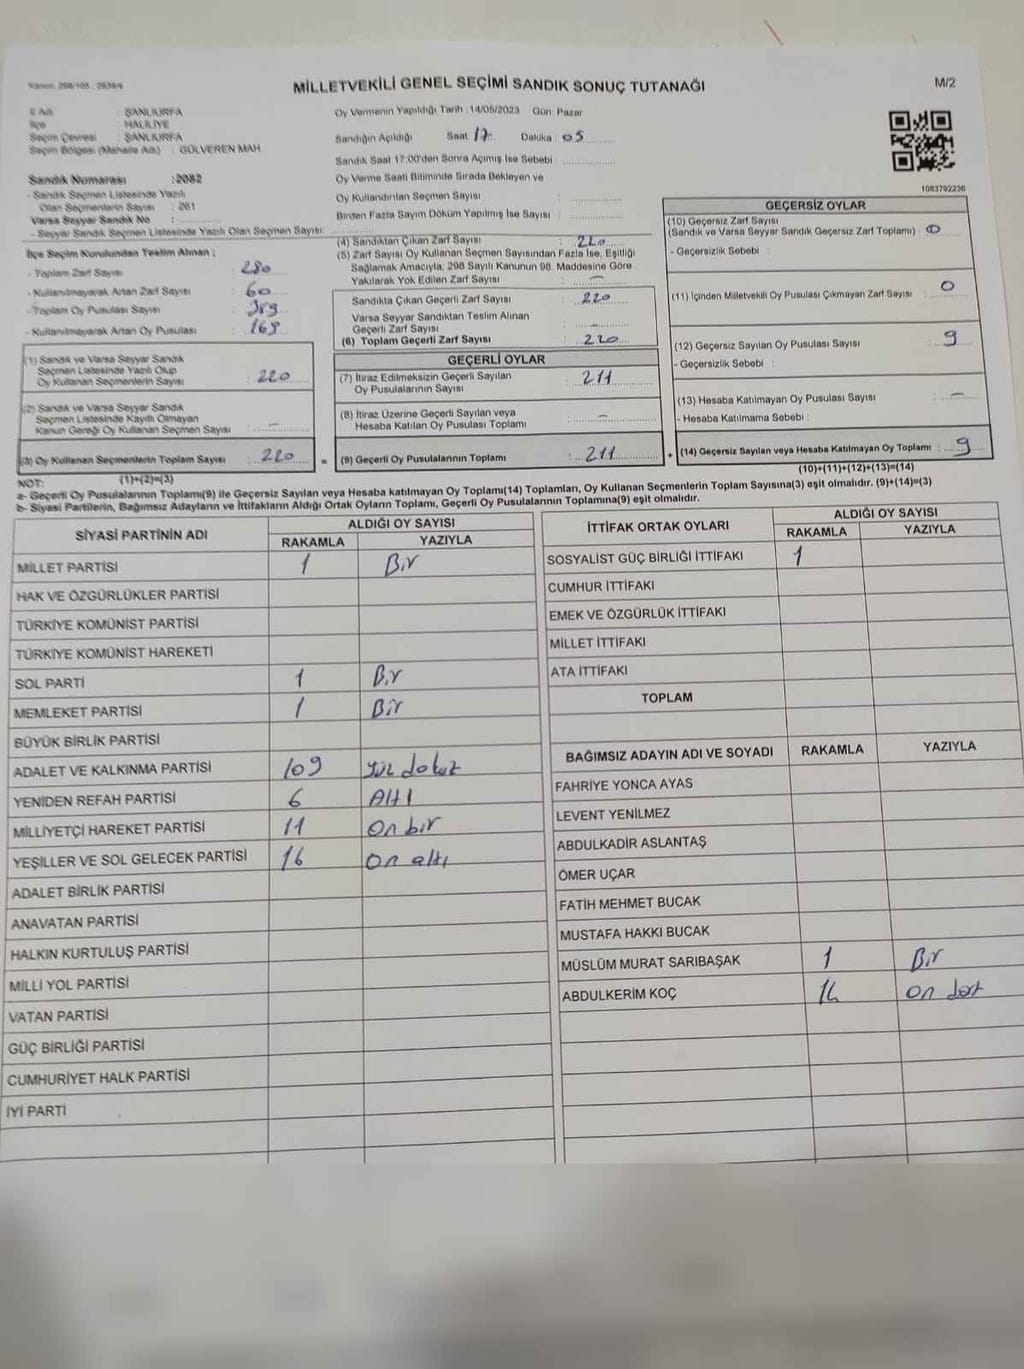 MİLLETVEKİLİ GENEL SEÇİMİ SANDIK SONUÇ TUTANAĞI
M/2
İl Adı : ŞANLIURFA
İlçe : HALİLİYE
Seçim Çevresi : ŞANLIURFA
Seçim Bölgesi (Mahalle Adı) : GÜLVEREN MAH.
Sandık Numarası :2082
- Sandık Seçmen Listesinde Yazılı
Olan Seçmenlerin Sayısı : 261
Varsa Seyyar Sandık No :
- Seyyar Sandık Seçmen Listesinde Yazılı Olan Seçmen Sayısı:
Oy Vermenin Yapıldığı Tarih :14/05/2023 Gün: Pazar
Sandığın Açıldığı Saat: 17 Dakika : 05
Sandık Saat 17:00'den Sonra Açımış İse Sebebi :
Oy Verme Saati Bitiminde Sırada Bekleyen ve
Oy Kullandırılan Seçmen Sayısı :
Birden Fazla Sayım Döküm Yapılmış İse Sayısı :
1083792236
İlçe Seçim Kurulundan Teslim Alınan ;
- Toplam Zarf Sayısı : 280
- Kullanılmayarak Artan Zarf Sayısı : 60
- Toplam Oy Pusulası Sayısı : 389
- Kullanılmayarak Artan Oy Pusulası : 169
(1) Sandık ve Varsa Seyyar Sandık
Seçmen Listesinde Yazılı Olup
Oy Kullanan Seçmenlerin Sayısı : 220
(2) Sandık ve Varsa Seyyar Sandık
Seçmen Listesinde Kayıtlı Olmayan
Kanun Gereği Oy Kullanan Seçmen Sayısı : –
(3) Oy Kullanan Seçmenlerin Toplam Sayısı : 220 =
(1)+(2)=(3)
(4) Sandıktan Çıkan Zarf Sayısı : 220
(5) Zarf Sayısı Oy Kullanan Seçmen Sayısından Fazla İse, Eşitliği
Sağlamak Amacıyla; 298 Sayılı Kanunun 98. Maddesine Göre
Yakılarak Yok Edilen Zarf Sayısı : –
Sandıkta Çıkan Geçerli Zarf Sayısı : 220
Varsa Seyyar Sandıktan Teslim Alınan
Geçerli Zarf Sayısı : –
(6) Toplam Geçerli Zarf Sayısı : 220
GEÇERLİ OYLAR
(7) İtiraz Edilmeksizin Geçerli Sayılan
Oy Pusulalarının Sayısı : 211
(8) İtiraz Üzerine Geçerli Sayılan veya
Hesaba Katılan Oy Pusulası Toplamı : –
(9) Geçerli Oy Pusulalarının Toplamı : 211 +
GEÇERSİZ OYLAR
(10) Geçersiz Zarf Sayısı
(Sandık ve Varsa Seyyar Sandık Geçersiz Zarf Toplamı) : 0
- Geçersizlik Sebebi :
(11) İçinden Milletvekili Oy Pusulası Çıkmayan Zarf Sayısı : 0
(12) Geçersiz Sayılan Oy Pusulası Sayısı : 9
- Geçersizlik Sebebi :
(13) Hesaba Katılmayan Oy Pusulası Sayısı : –
- Hesaba Katılmama Sebebi :
(14) Geçersiz Sayılan veya Hesaba Katılmayan Oy Toplamı : 9
(10)+(11)+(12)+(13)=(14)
NOT:
a- Geçerli Oy Pusulalarının Toplamı(9) ile Geçersiz Sayılan veya Hesaba katılmayan Oy Toplamı(14) Toplamları, Oy Kullanan Seçmenlerin Toplam Sayısına(3) eşit olmalıdır. (9)+(14)=(3)
b- Siyasi Partilerin, Bağımsız Adayların ve İttifakların Aldığı Ortak Oyların Toplamı, Geçerli Oy Pusulalarının Toplamına(9) eşit olmalıdır.
SİYASİ PARTİNİN ADI ALDIĞI OY SAYISI
RAKAMLA YAZIYLA
MİLLET PARTİSİ 1 Bir
HAK VE ÖZGÜRLÜKLER PARTİSİ
TÜRKİYE KOMÜNİST PARTİSİ
TÜRKİYE KOMÜNİST HAREKETİ
SOL PARTİ 1 Bir
MEMLEKET PARTİSİ 1 Bir
BÜYÜK BİRLİK PARTİSİ
ADALET VE KALKINMA PARTİSİ 109 yüz dokuz
YENİDEN REFAH PARTİSİ 6 Altı
MİLLİYETÇİ HAREKET PARTİSİ 11 On bir
YEŞİLLER VE SOL GELECEK PARTİSİ 16 on altı
ADALET BİRLİK PARTİSİ
ANAVATAN PARTİSİ
HALKIN KURTULUŞ PARTİSİ
MİLLİ YOL PARTİSİ
VATAN PARTİSİ
GÜÇ BİRLİĞİ PARTİSİ
CUMHURİYET HALK PARTİSİ
İYİ PARTİ
İTTİFAK ORTAK OYLARI ALDIĞI OY SAYISI
RAKAMLA YAZIYLA
SOSYALİST GÜÇ BİRLİĞİ İTTİFAKI 1
CUMHUR İTTİFAKI
EMEK VE ÖZGÜRLÜK İTTİFAKI
MİLLET İTTİFAKI
ATA İTTİFAKI
TOPLAM
BAĞIMSIZ ADAYIN ADI VE SOYADI RAKAMLA YAZIYLA
FAHRİYE YONCA AYAS
LEVENT YENİLMEZ
ABDULKADİR ASLANTAŞ
ÖMER UÇAR
FATİH MEHMET BUCAK
MUSTAFA HAKKI BUCAK
MÜSLÜM MURAT SARIBAŞAK 1 Bir
ABDULKERİM KOÇ 14 on dört